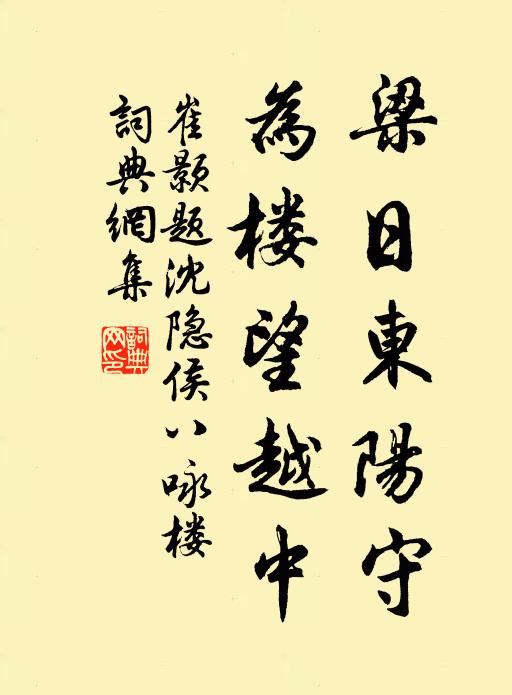 梁日東陽守
為楼望越中
崔颢题沈隐侯八咏楼
詞典網集
詞典網印